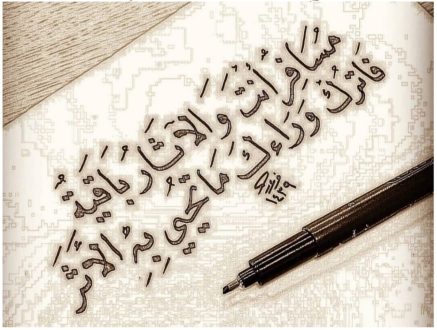 مُسَافِرٌ أَنْتَ وَالآثَارُ بَاقِيَةٌ
فَاتْرُكْ وَرَاءَكَ مَا تُحْيِي بِهِ الأَثَرَ
١٤٣٩